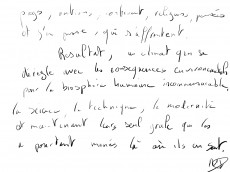 pays, nations, continent, religions, pensées
et j'en passe, qui s'affrontent.
Résultat, un climat qui se
dérègle avec les conséquences
pour la biosphère humaine incommensurable,
la science, la technique, la modernité
et maintenant leurs seul que les
a pourtant menés là où ils en sont.